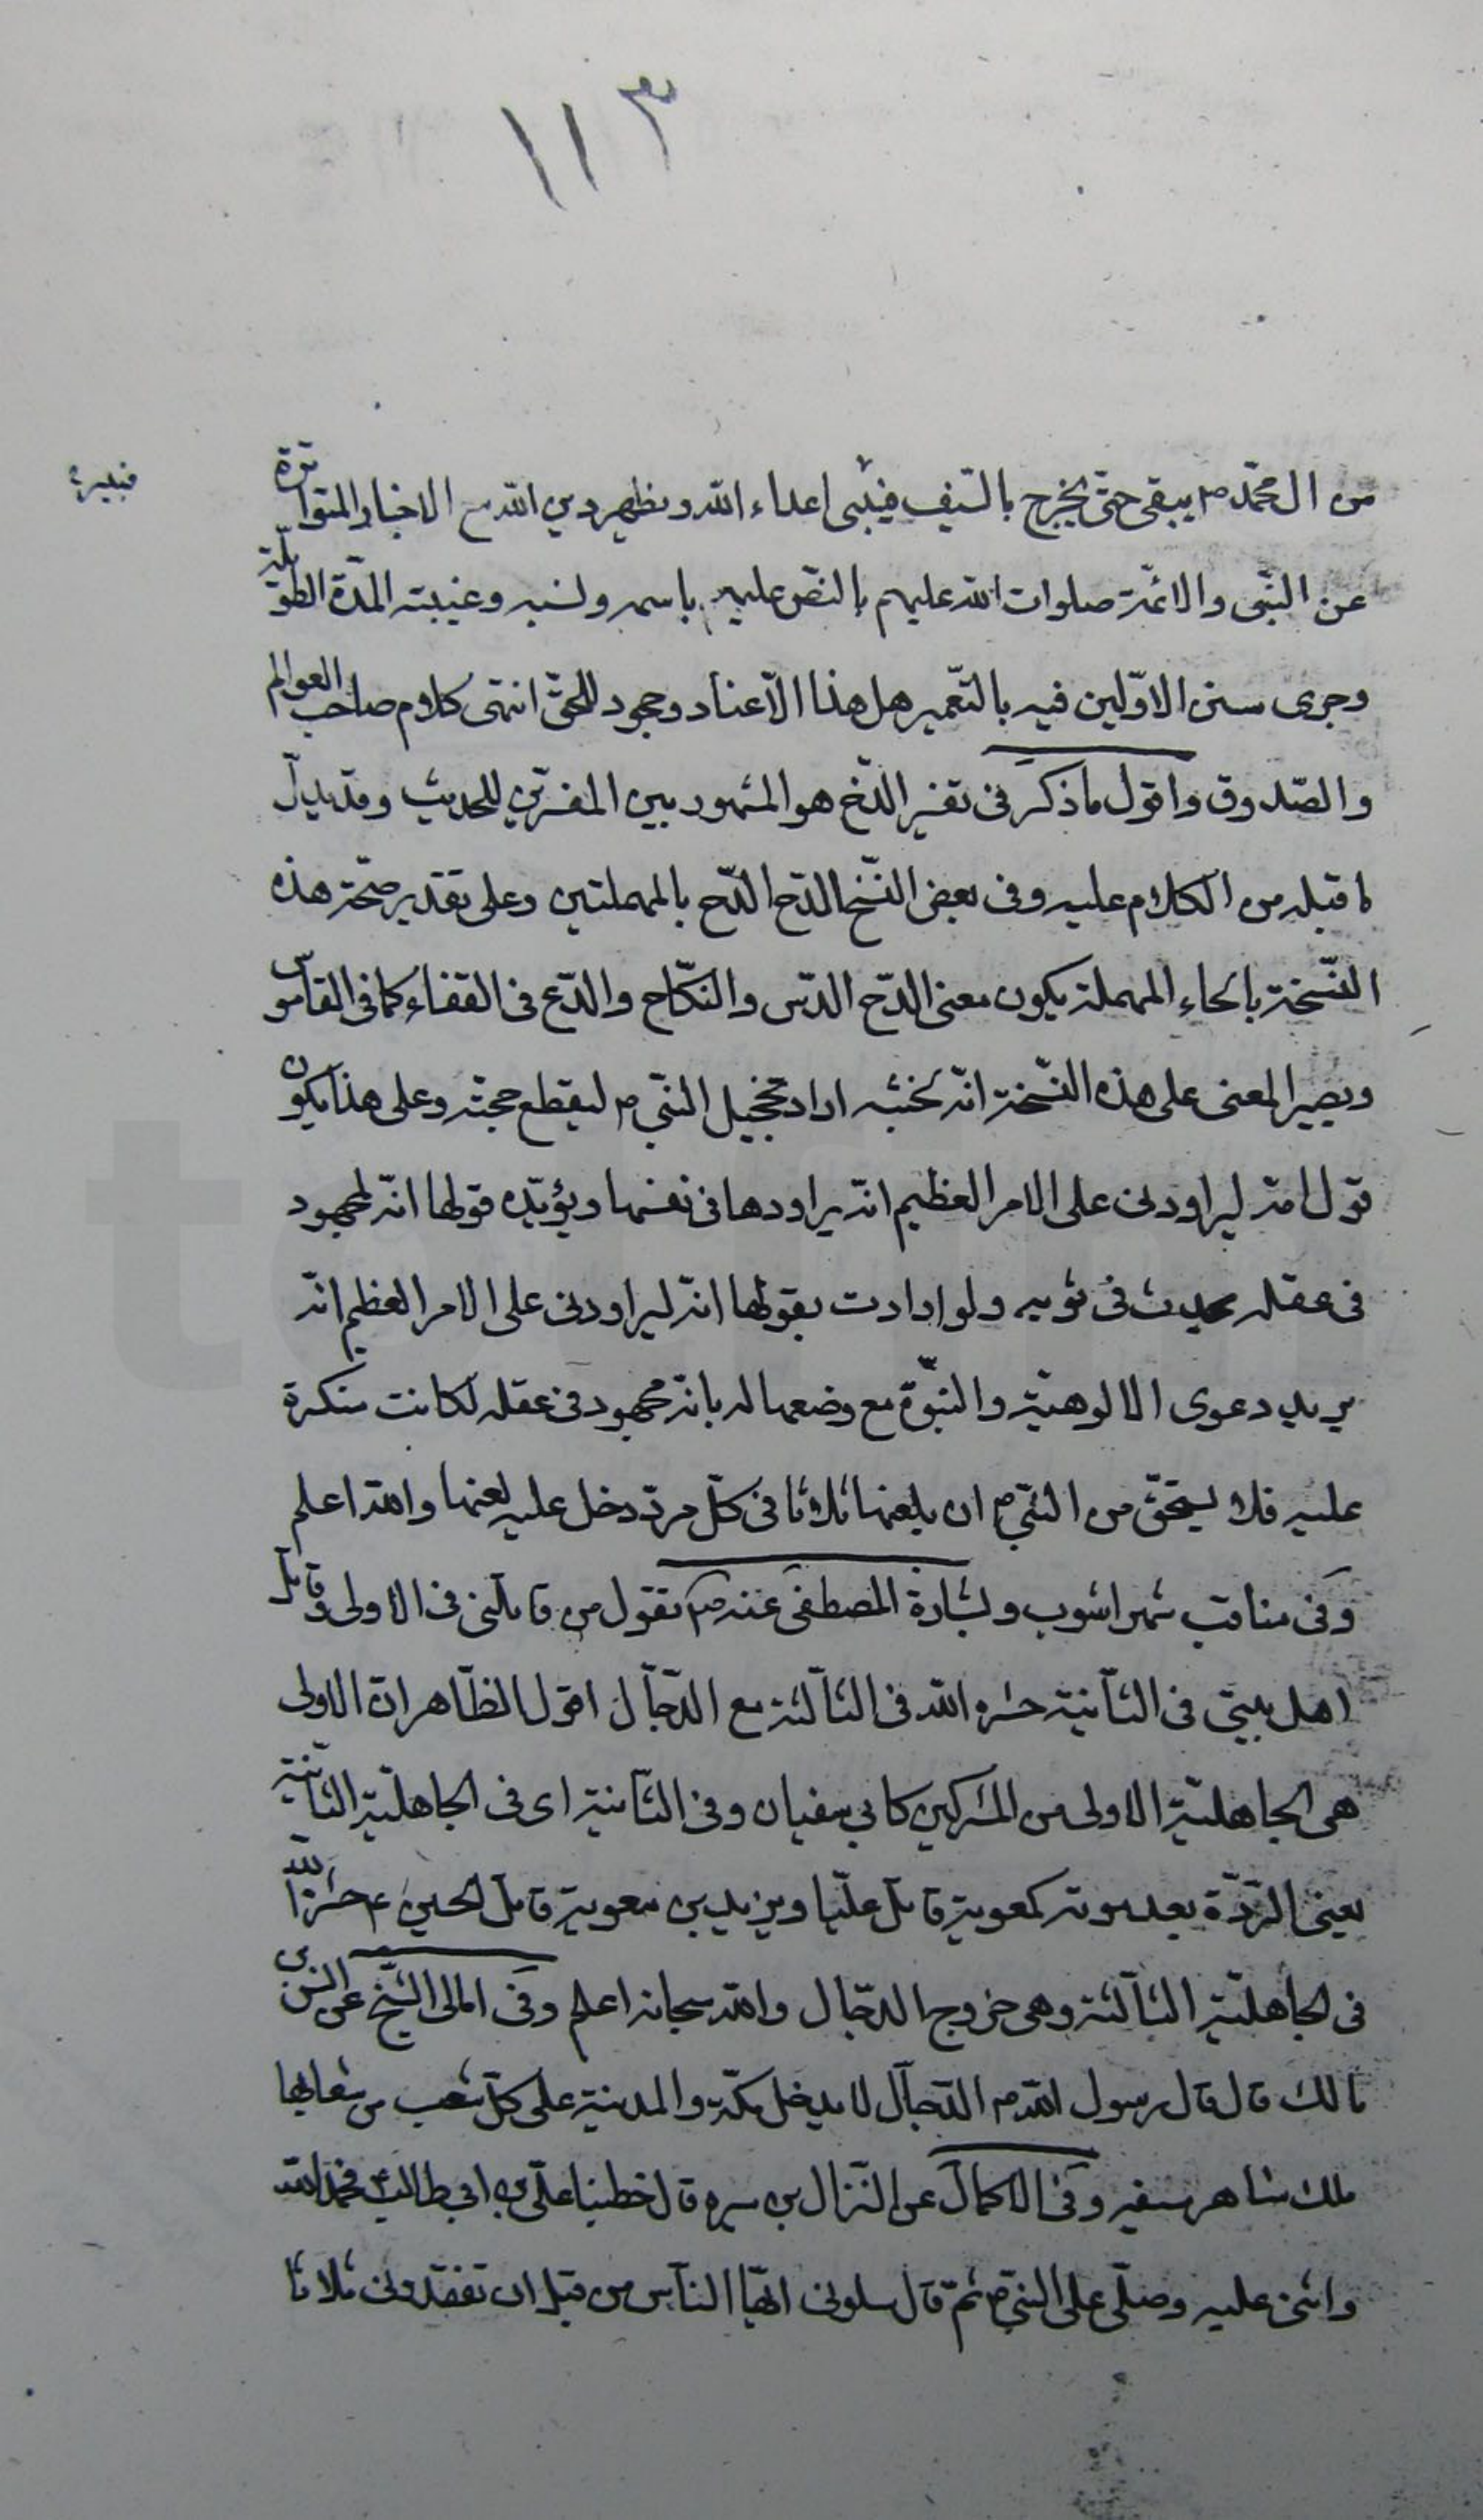 ١١٣
فيبير
من ال محمّد ص يبقى حتى يخرج بالسّيف فيبير اعداء الله ويظهر دين الله مع الاخبار المتواترة
عن النّبى والائمّة صلوات الله عليهم بالنصّ عليه باسمه ونسبه وغيبته المدّة الطويلة
وجرى سنن الاوّلين فيه بالتّعمير هل هذا الّا عناد وجحود للحقّ انتهى كلام صاحب العوالم
والصّدوق واقول ما ذكر فى تفسير الدّخ هو المشهور بين المفسّرين للحديث وقد يدلّ
ما قبله من الكلام عليه وفى بعض النّسخ الدّح الدّح بالمهملتين وعلى تقدير صحّة هذه
النّسخة بالحاء المهملة يكون معنى الدّح الدّس والنّكاح والدّع فى القفاء كما فى القاموس
ويصير المعنى على هذه النّسخة انّه لخبثه اراد تخجيل النّبي ص ليقطع حجته وعلى هذا يكون
قول امّه ليراودنى على الامر العظيم انّه يراودها فى نفسها ويؤيّده قولها انّه لمجهود
فى عقله يحدث فى ثوبه ولو ارادت بقولها انّه ليراودنى على الامر العظيم انّه
يريد دعوى الالوهيّة والنّبوّة مع وضعها له بانّه مجهود فى عقله لكانت منكرة
عليه فلا يستحقّ من النّبي ص ان يلعنها ثلاثا فى كلّ مرّة دخل عليه لعنها والله اعلم
وفى مناقب شهراشوب وبشارة المصطفى عنه ص يقول من قاتلنى فى الاولى وقاتل
اهل بيتى فى الثّانية حشره الله فى الثّالثة مع الدّجّال اقول الظّاهر انّ الاولى
هى الجاهليّة الاولى من المشركين كابى سفيان وفى الثّانية اى فى الجاهليّة الثّانية
يعنى الرّدّة بعد موته كمعوية قاتل عليّا ويزيد بن معوية قاتل الحسين ع حشرهما الله
فى الجاهليّة الثّالثة وهى خروج الدجّال والله سبحانه اعلم وفى امالى الشّيخ عن انس بن
مالك قال قال رسول الله ص الدّجّال لا يدخل مكّة والمدينة على كلّ شعب من شعابها
ملك شاهر سيفه وفى الاكمال عن النّزال بن سبره قال خطبنا علىّ بن ابى طالب ع فحمد الله
واثنى عليه وصلّى على النّبيّ ص ثمّ قال سلونى ايّها النّاس من قبل ان تفقدونى ثلاثا